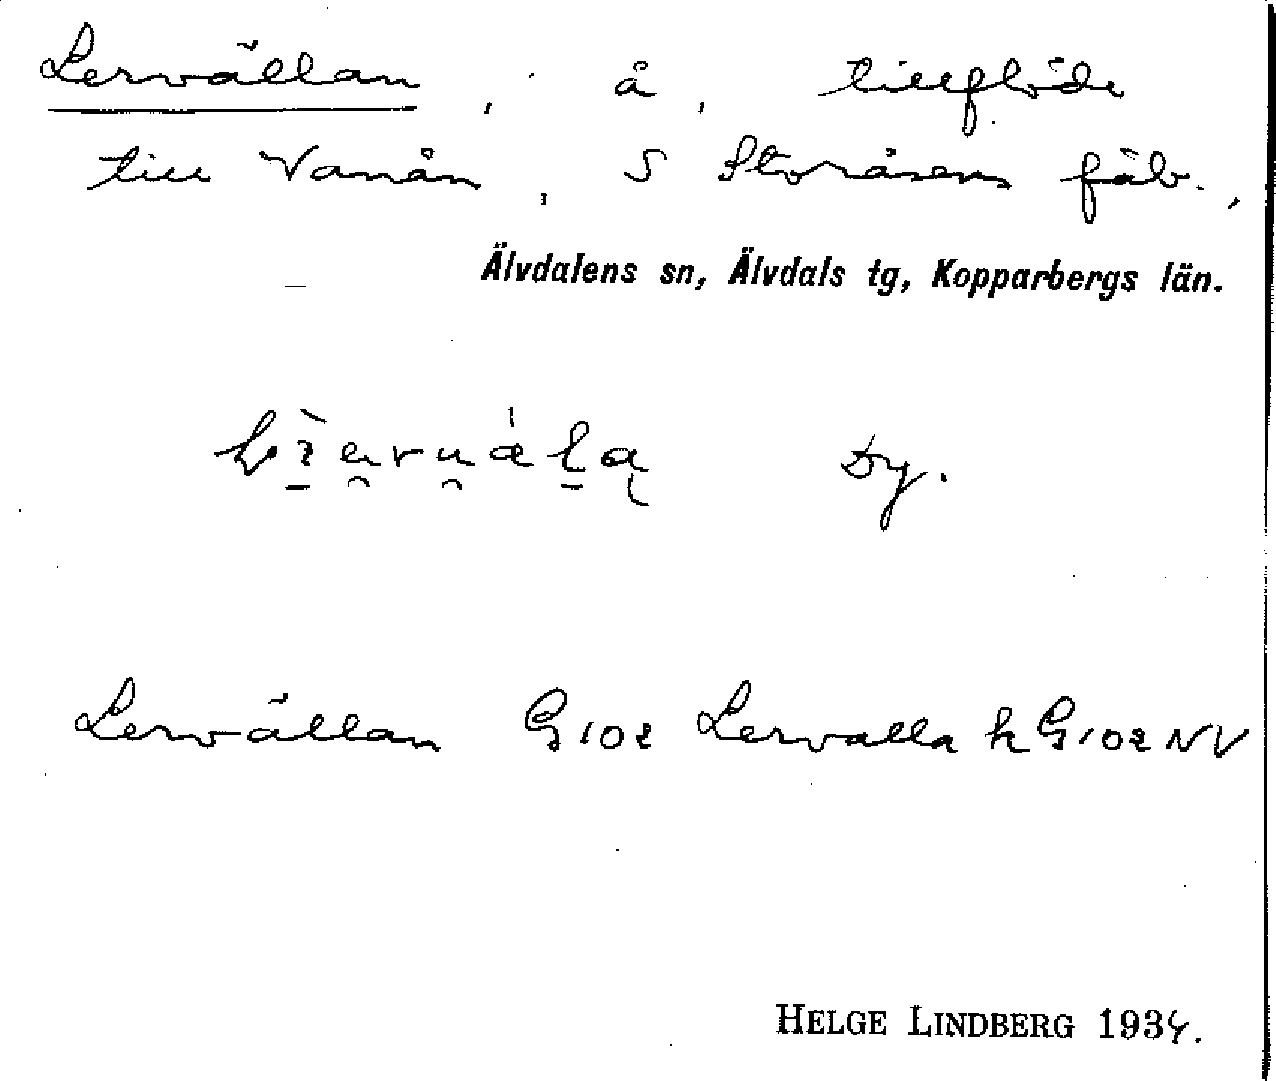 Lervällan, å, tillflöde
till Vanån, S Storåsens fäb.,
Älvdalens sn, Älvdals tg, Kopparbergs län.
Dy.
Lervällan G102 Lervalla h G102 NV
HELGE LINDBERG 1934.